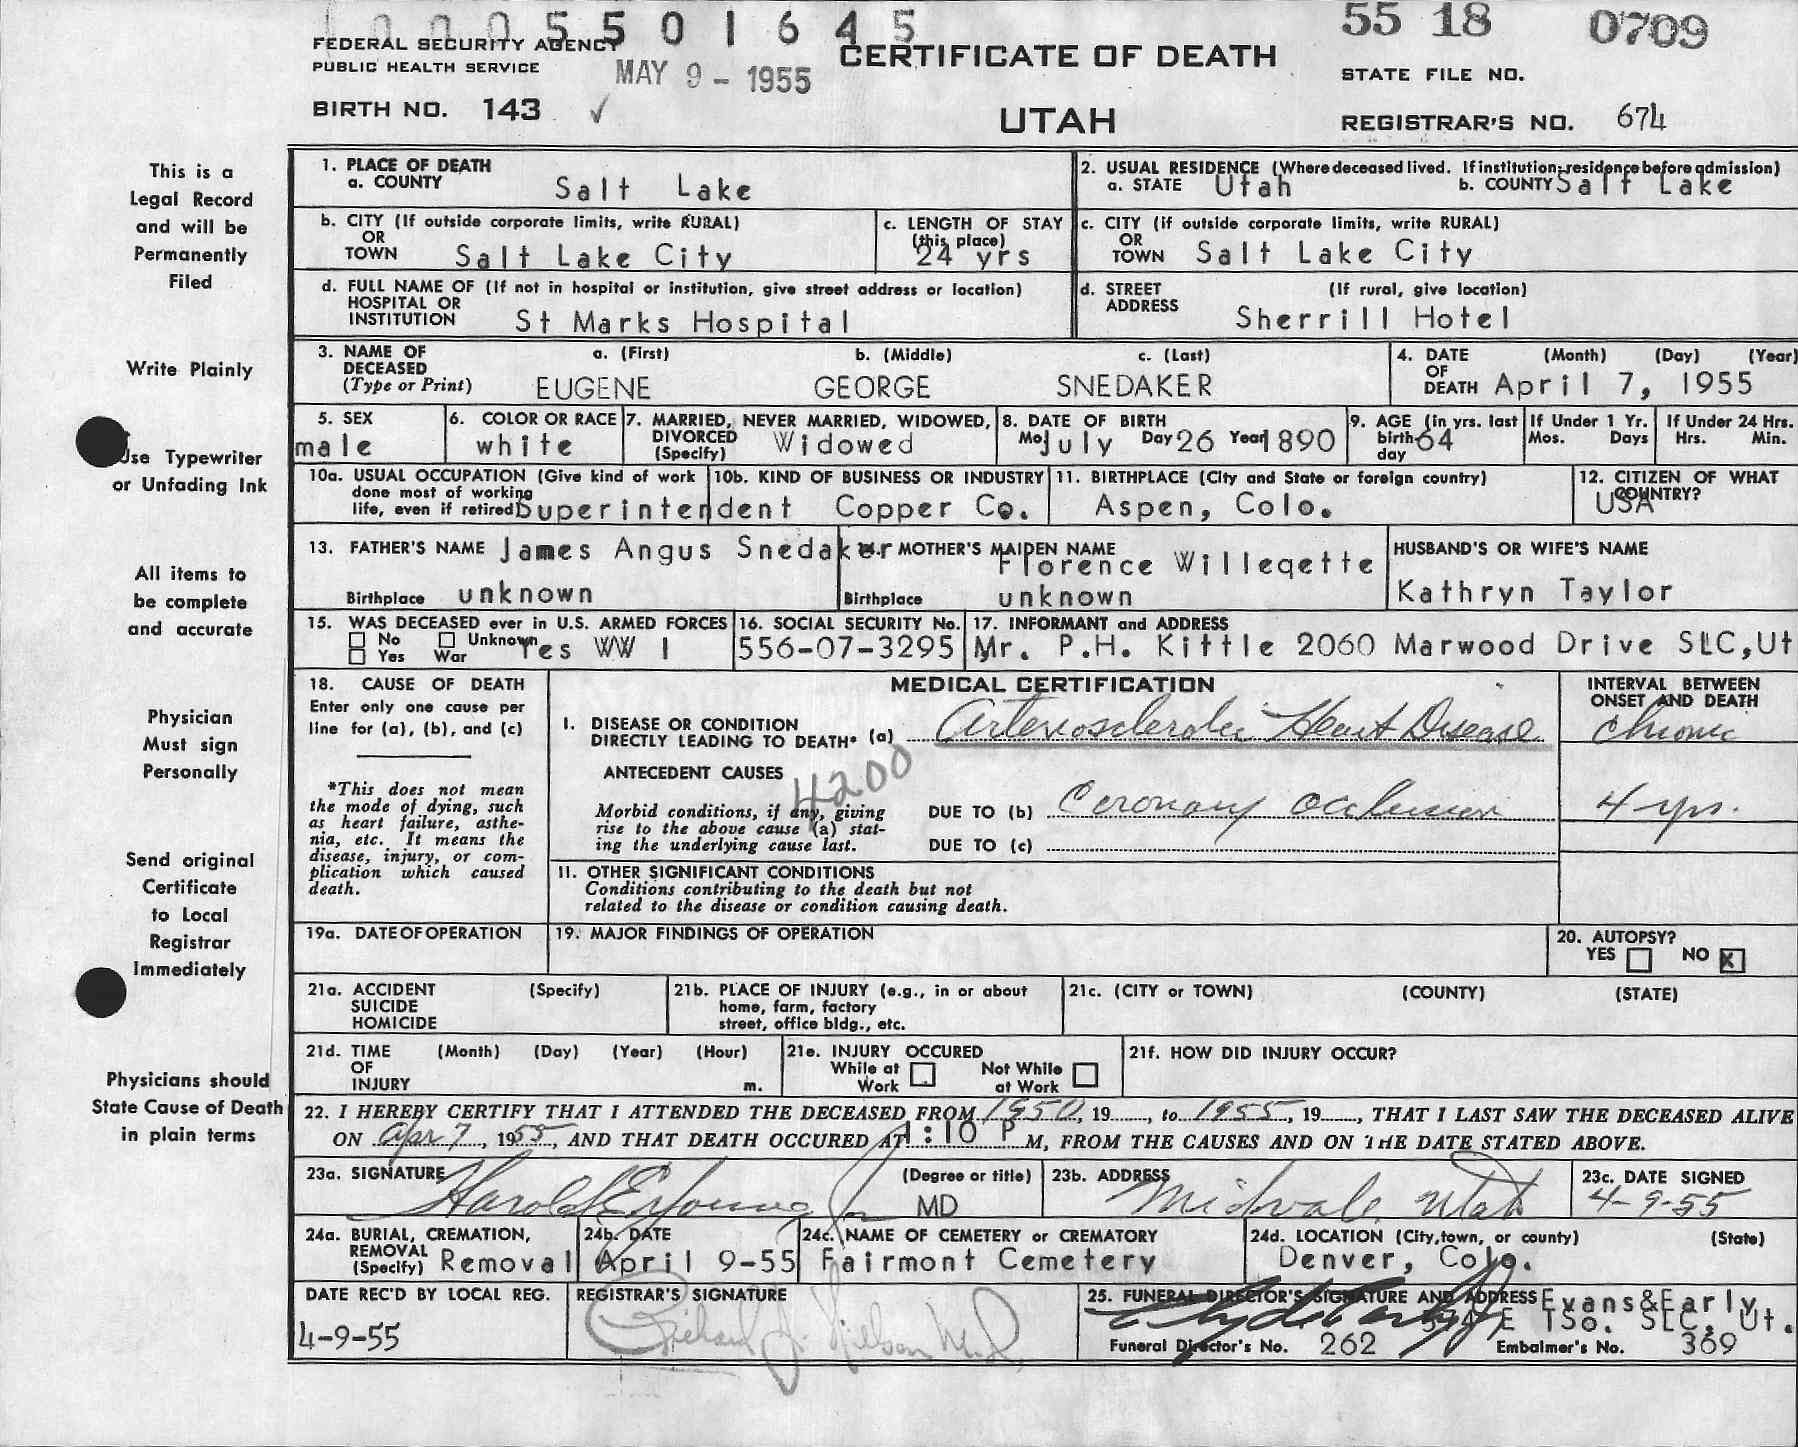 1 0 0 0 5 5 0 1 6 4 5
55 18 0709
FEDERAL SECURITY AGENCY
PUBLIC HEALTH SERVICE
MAY 9 - 1955
CERTIFICATE OF DEATH
STATE FILE NO.
BIRTH NO. 143 ✓
UTAH
REGISTRAR'S NO. 674
This is a
Legal Record
and will be
Permanently
Filed
Write Plainly
Use Typewriter
or Unfading Ink
All items to
be complete
and accurate
Physician
Must sign
Personally
Send original
Certificate
to Local
Registrar
Immediately
Physicians should
State Cause of Death
in plain terms
1. PLACE OF DEATH
a. COUNTY Salt Lake
2. USUAL RESIDENCE (Where deceased lived. If institution: residence before admission)
a. STATE Utah b. COUNTY Salt Lake
b. CITY (If outside corporate limits, write RURAL)
OR
TOWN Salt Lake City
c. LENGTH OF STAY
(this place)
24 yrs
c. CITY (if outside corporate limits, write RURAL)
OR
TOWN Salt Lake City
d. FULL NAME OF (If not in hospital or institution, give street address or location)
HOSPITAL OR
INSTITUTION St Marks Hospital
d. STREET (If rural, give location)
ADDRESS
Sherrill Hotel
3. NAME OF a. (First) b. (Middle) c. (Last)
DECEASED
(Type or Print) EUGENE GEORGE SNEDAKER
4. DATE (Month) (Day) (Year)
OF
DEATH April 7, 1955
5. SEX
male
6. COLOR OR RACE
white
7. MARRIED, NEVER MARRIED, WIDOWED,
DIVORCED
(Specify) Widowed
8. DATE OF BIRTH
Mo July Day 26 Year 1890
9. AGE (in yrs. last
birth-
day 64
If Under 1 Yr.
Mos. Days
If Under 24 Hrs.
Hrs. Min.
10a. USUAL OCCUPATION (Give kind of work
done most of working
life, even if retired) Superintendent
10b. KIND OF BUSINESS OR INDUSTRY
Copper Co.
11. BIRTHPLACE (City and State or foreign country)
Aspen, Colo.
12. CITIZEN OF WHAT
COUNTRY?
USA
13. FATHER'S NAME James Angus Snedaker
Birthplace unknown
MOTHER'S MAIDEN NAME
Florence Willegette
Birthplace unknown
HUSBAND'S OR WIFE'S NAME
Kathryn Taylor
15. WAS DECEASED ever in U.S. ARMED FORCES
No Unknown
Yes War Yes WW I
16. SOCIAL SECURITY No.
556-07-3295
17. INFORMANT and ADDRESS
Mr. P.H. Kittle 2060 Marwood Drive SLC,Ut
18. CAUSE OF DEATH
Enter only one cause per
line for (a), (b), and (c)
*This does not mean
the mode of dying, such
as heart failure, asthe-
nia, etc. It means the
disease, injury, or com-
plication which caused
death.
MEDICAL CERTIFICATION
INTERVAL BETWEEN
ONSET AND DEATH
I. DISEASE OR CONDITION
DIRECTLY LEADING TO DEATH* (a) Arteriosclerotic Heart Disease
Chronic
ANTECEDENT CAUSES
4200
Morbid conditions, if any, giving
rise to the above cause (a) stat-
ing the underlying cause last.
DUE TO (b) Coronary occlusion
4 yrs.
DUE TO (c)
11. OTHER SIGNIFICANT CONDITIONS
Conditions contributing to the death but not
related to the disease or condition causing death.
19a. DATE OF OPERATION
19. MAJOR FINDINGS OF OPERATION
20. AUTOPSY?
YES NO X
21a. ACCIDENT (Specify)
SUICIDE
HOMICIDE
21b. PLACE OF INJURY (e.g., in or about
home, farm, factory
street, office bldg., etc.
21c. (CITY or TOWN) (COUNTY) (STATE)
21d. TIME (Month) (Day) (Year) (Hour)
OF
INJURY m.
21e. INJURY OCCURED
While at Not While
Work at Work
21f. HOW DID INJURY OCCUR?
22. I HEREBY CERTIFY THAT I ATTENDED THE DECEASED FROM 1950, 19......, to 1955, 19......, THAT I LAST SAW THE DECEASED ALIVE
ON Apr 7, 1955, AND THAT DEATH OCCURED AT 1:10 P M, FROM THE CAUSES AND ON THE DATE STATED ABOVE.
23a. SIGNATURE (Degree or title)
Harold E Young Jr MD
23b. ADDRESS
Midvale, Utah
23c. DATE SIGNED
4-9-55
24a. BURIAL, CREMATION,
REMOVAL
(Specify) Removal
24b. DATE
April 9-55
24c. NAME OF CEMETERY or CREMATORY
Fairmont Cemetery
24d. LOCATION (City, town, or county) (State)
Denver, Colo.
DATE REC'D BY LOCAL REG.
4-9-55
REGISTRAR'S SIGNATURE
25. FUNERAL DIRECTOR'S SIGNATURE AND ADDRESS Evans&Early
E 1So. SLC, Ut.
Funeral Director's No. 262 Embalmer's No. 369